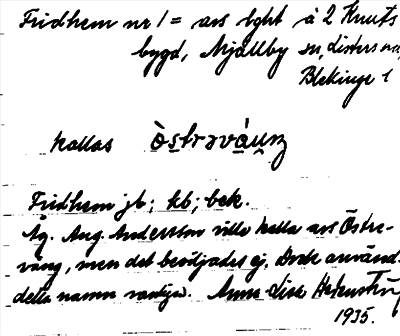 Fridhem nr 1 = avs lght å 2 Knuts
bygd, Mjällby sn, Listers hd,
Blekinge l
kallas òstrəváŋ
Fridhem jb; kb; bek.
Äg. Aug. Andersson ville kalla avs Östre-
vång, men det beviljades ej. Dock använd.
detta namn vanligv. Anna-Lisa
1935.